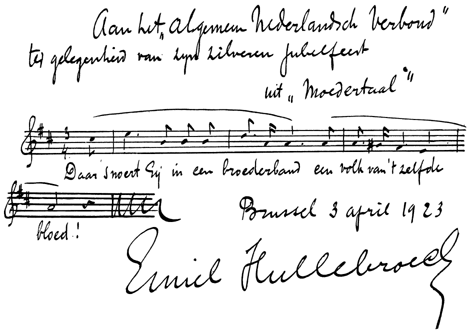 Aan het „Algemeen Nederlandsch Verbond"
ter gelegenheid van zyn zilveren jubelfeest
uit „Moedertaal"
Daar snoert Gij in een broederband een volk van't zelfde
bloed!
Brussel 3 april 1923
Emiel Hullebroeck